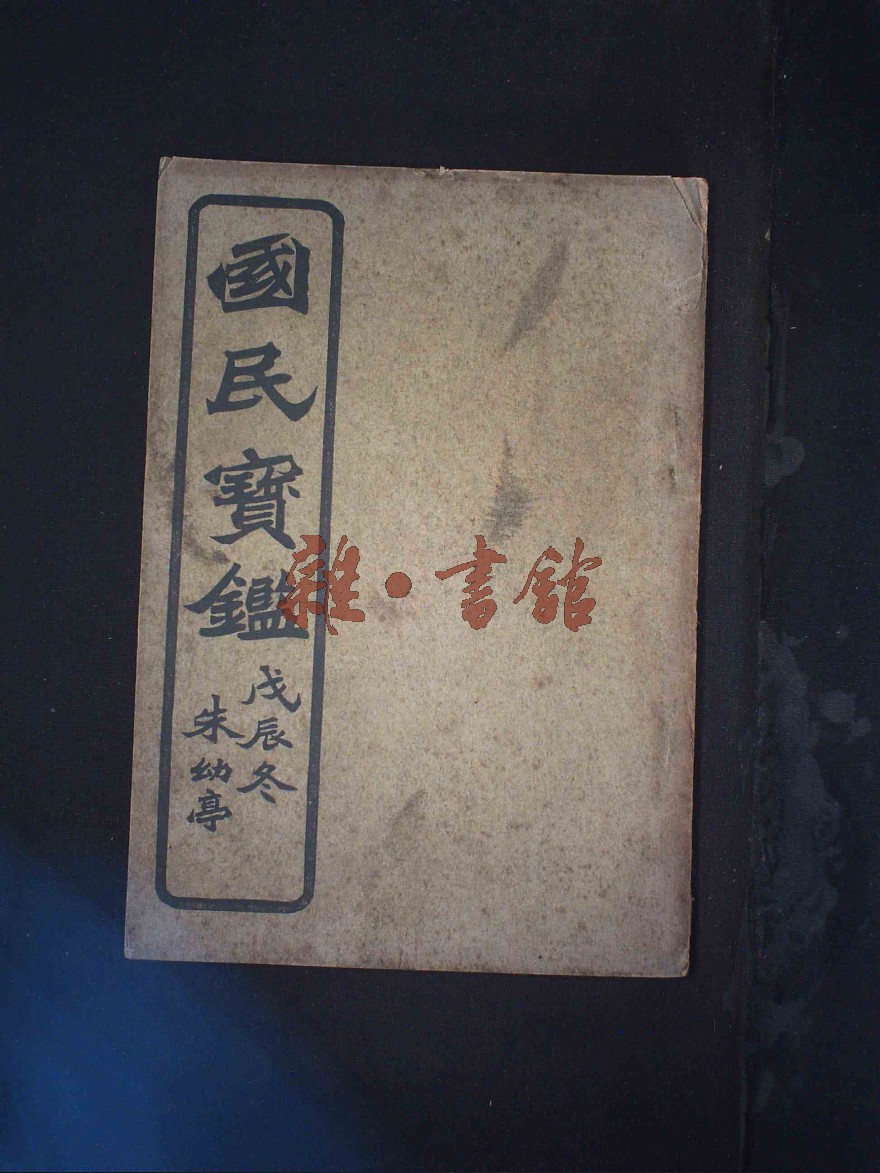 國民寶鑑
戊辰冬
朱幼亭
雜·書館